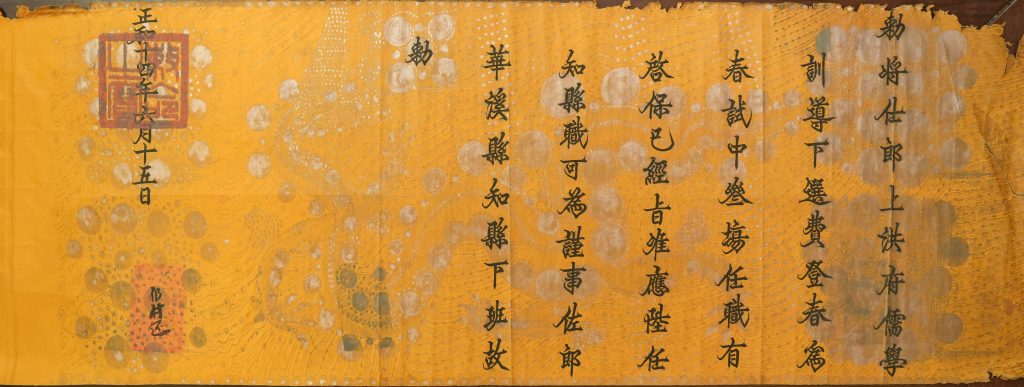 勅將仕郎上洪府儒學
訓導下選費登春爲
春試中叄塲任職有
啓保已經旨準應陞任
知縣職可為謹事佐郎
華溪縣知縣下班故
勅
正和十四年六月十五日